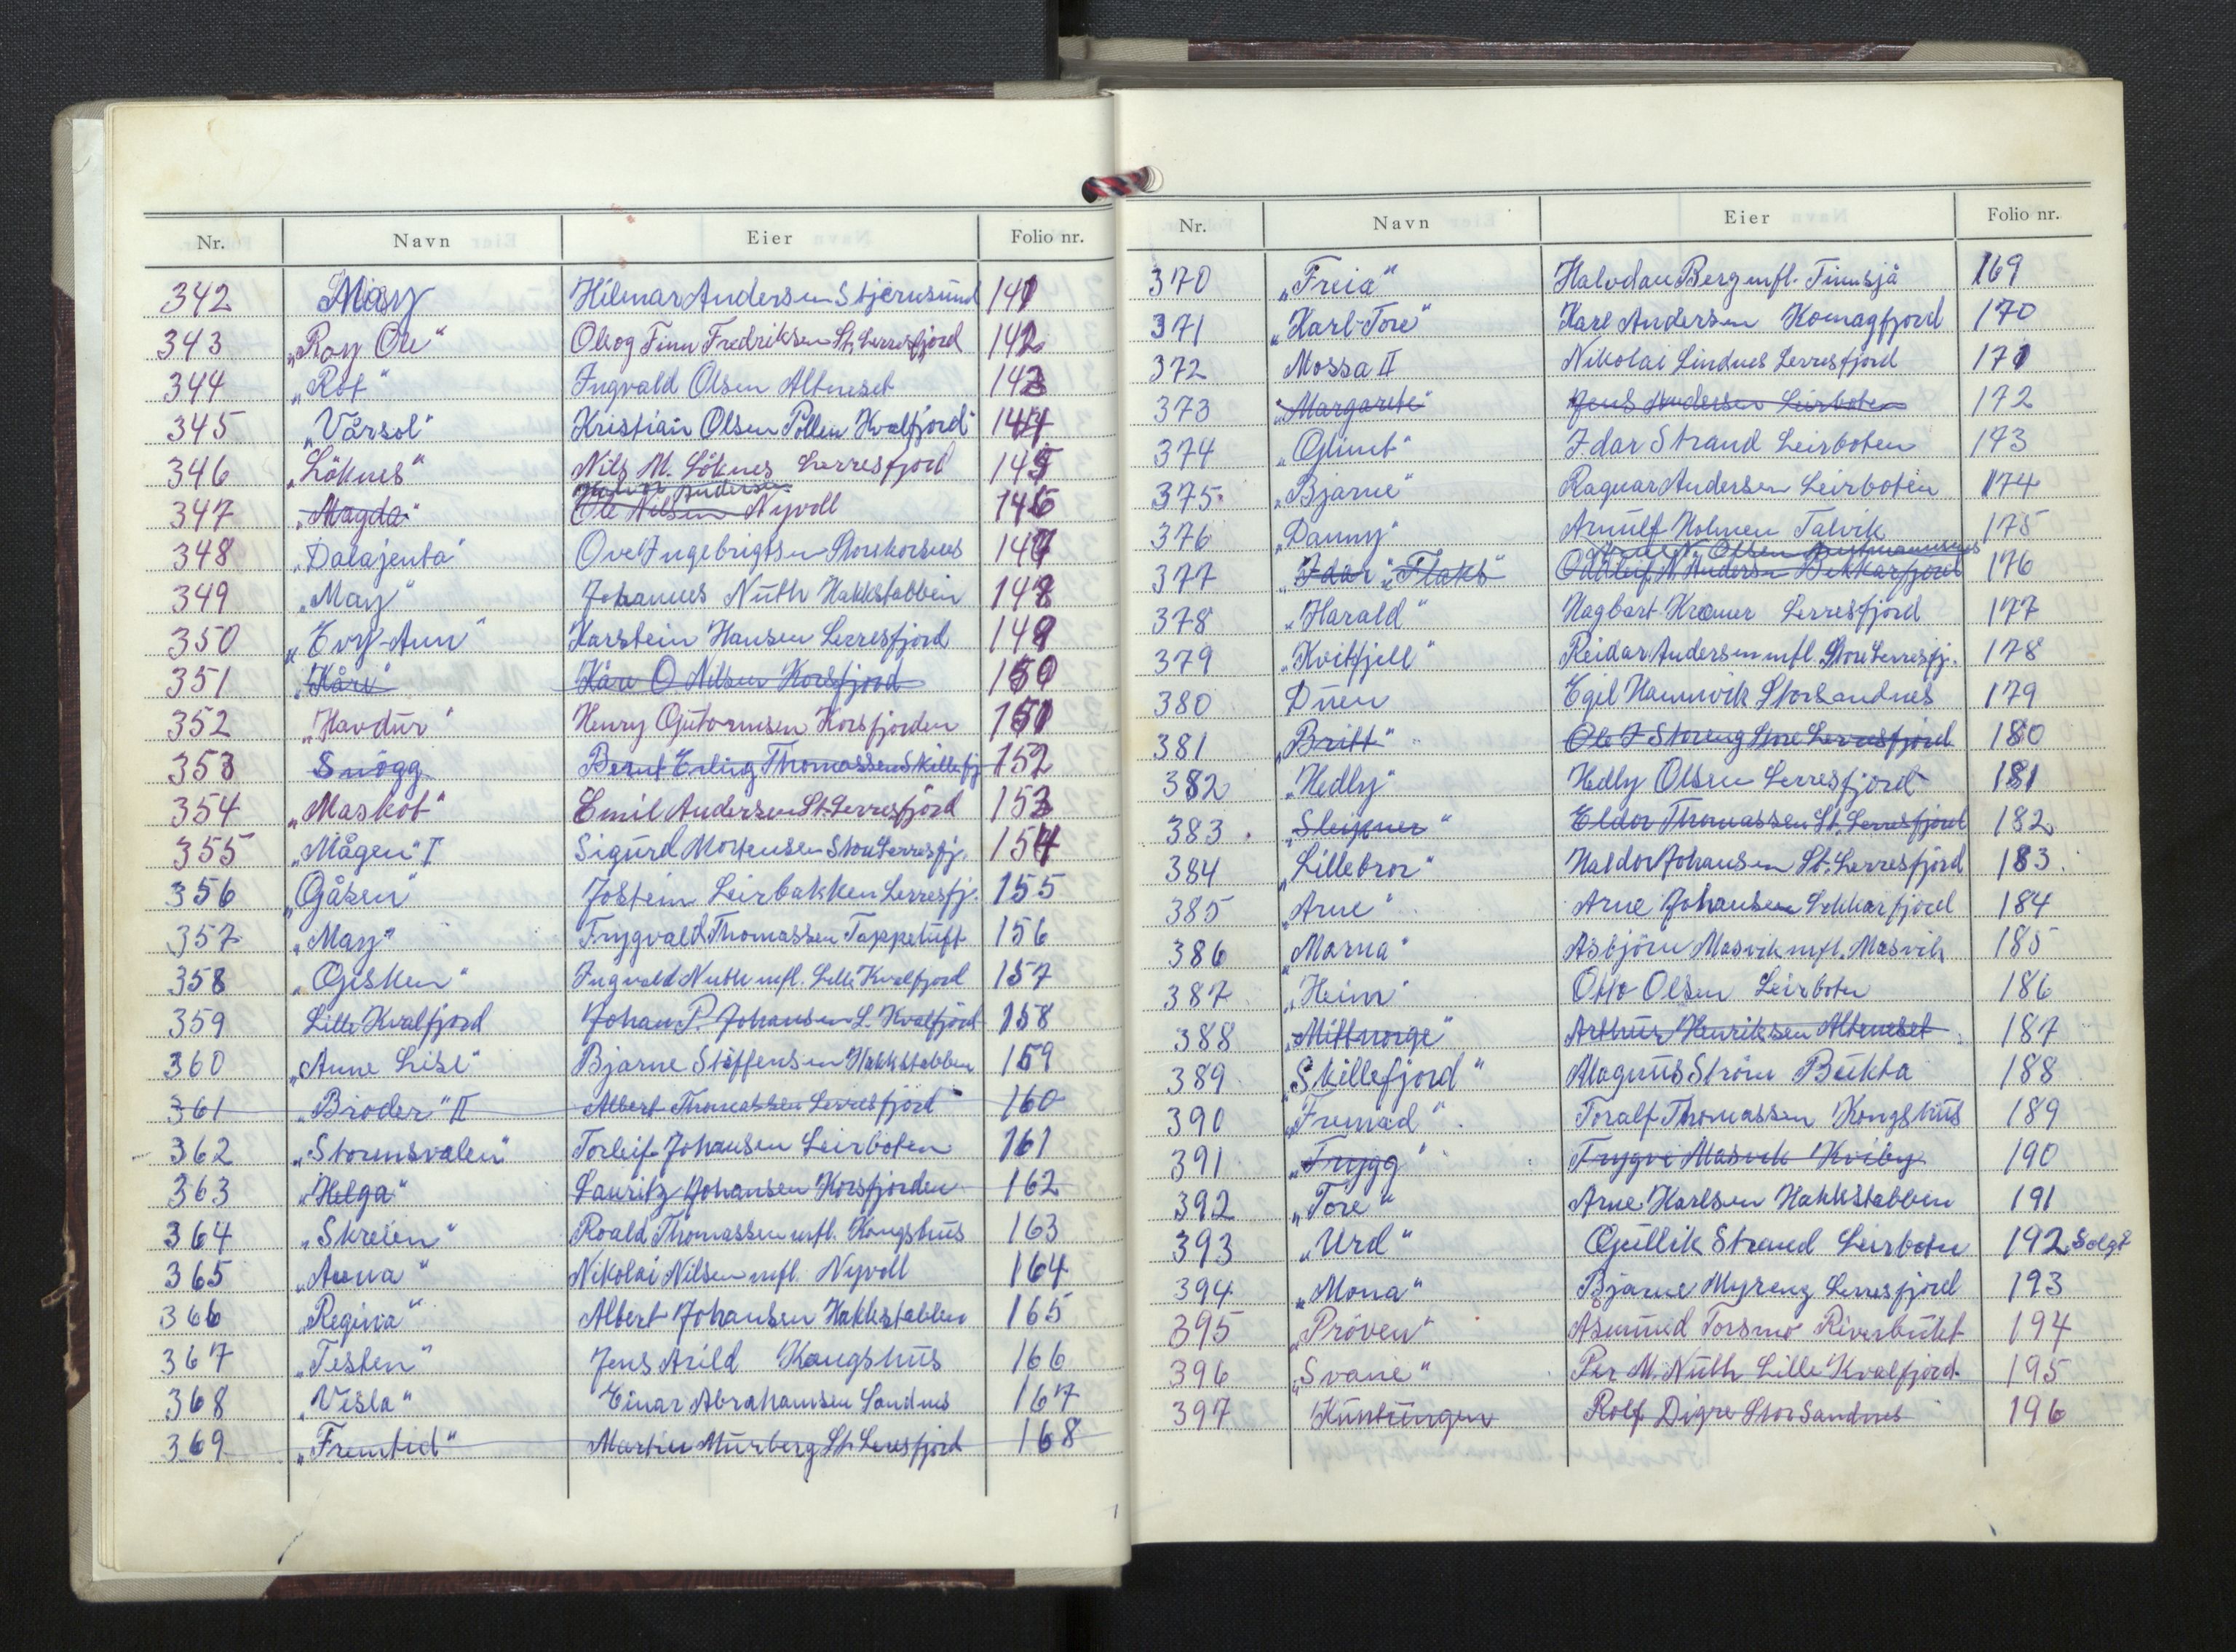 Nr. Navn Eier Folio nr.
342 May Hilmar Andersen Stjernsund 141
343 „Roy Ole“ Ole og Finn Fredriksen St. Lerresfjord 142
344 „Rot“ Ingvald Olsen Altneset 143
345 „Vårsol“ Kristian Olsen Pollen Kvalfjord 144
346 „Löknes“ Nils M. Löknes Lerresfjord 145
Andersen
347 „Magda“ Ole Nilsen Nyvoll 146
348 „Dalajenta“ Ove Ingebrigtsen Storekorsnes 147
349 „May“ Johannes Nuth Hakkstabben 148
350 „Evy-Ann“ Karstein Hansen Lerresfjord 149
351 „Kåre“ Kåre O Nilsen Korsfjord 150
352 „Havdur“ Henry Gutormsen Korsfjorden 151
353 Snögg Bernt Erling Thomassen Skillefj 152
354 „Maskot“ Emil Andersen St. Lerresfjord 153
355 „Mågen“ I Sigurd Mortensen Store Lerresfj. 154
356 „Gåsen“ Jostein Leirbakken Lerresfj. 155
357 „May“ Trygvald Thomassen Tappeluft 156
358 „Gisken“ Ingvald Nuth mfl. Lille Kvalfjord 157
359 Lille Kvalfjord Johan P. Johansen L. Kvalfjord 158
360 „Anne Lise“ Bjarne Steffensen Hakkstabben 159
361 „Broder“ II Albert Thomassen Lerresfjord 160
362 „Stormsvalen“ Torleif Johansen Leirboten 161
363 „Helga“ Lauritz Johansen Korsfjorden 162
364 „Skreien“ Roald Thomassen mfl. Kongshus 163
365 „Anna“ Nikolai Nilsen mfl. Nyvoll 164
366 „Regina“ Albert Johansen Hakkstabben 165
367 „Testen“ Jens Arild Kongshus 166
368 „Visla“ Einar Abrahamsen Sandnes 167
369 „Fremtid“ Martin Murberg St. Lerresfjord 168
Nr. Navn Eier Folio nr.
370 „Freia“ Halvdan Berg mfl. 169
371 „Karl-Tore“ Karl Andersen Komagfjord 170
372 Mossa II Nikolai Lindnes Lerresfjord 171
373 „Margarete“ Jens Andersen Leirboten 172
374 „Glimt“ Idar Strand Leirboten 173
375. „Bjarne“ Ragnar Andersen Leirboten 174
376 „Danny“ Arnulf Holmen Talvik 175
N. Olsen
377 „Idar“ „Flaks“ Oddleif N. Andersen Bekkarfjord 176
378 „Harald“ Hagbart Kramer Lerresfjord 177
379 „Kvitfjell“ Reidar Andersen mfl. Store Lerresfj. 178
380 Duen Egil Hamnvik Storsandnes 179
381 „Britt“ Ole J Storeng Store Lerresfjord 180
382 „Hedly“ Hedly Olsen Lerresfjord 181
383. „Sleipner“ Eldor Thomassen St. Lerresfjord 182
384 „Lillebror“ Haldor Johansen St. Lerresfjord 183.
385 „Arne“ Arne Johansen Lokkarfjord 184
386 „Marna“ Asbjörn Masvik mfl. Masvik 185
387 „Heim“ Otto Olsen Leirboten 186
388 „Mittnorge“ Arthur Henriksen Altneset 187
389 „Skillefjord“ Magnus Ström Bukta 188
390 „Fremad“ Toralf Thomassen Kongshus 189
391 „Trygg“ Trygve Masvik Kviby 190
392 „Tore“ Arne Karlsen Hakkstabben 191
393 „Urd“ Gullik Strand Leirboten 192 Solgt
394 „Mona“ Bjarne Myreng Lerresfjord 193
395 „Pröven“ Åsmund Torsmo Riverbukt 194
396 „Svane“ Per M. Nuth Lille Kvalfjord. 195
397 Rolf Digre Storsandnes 196